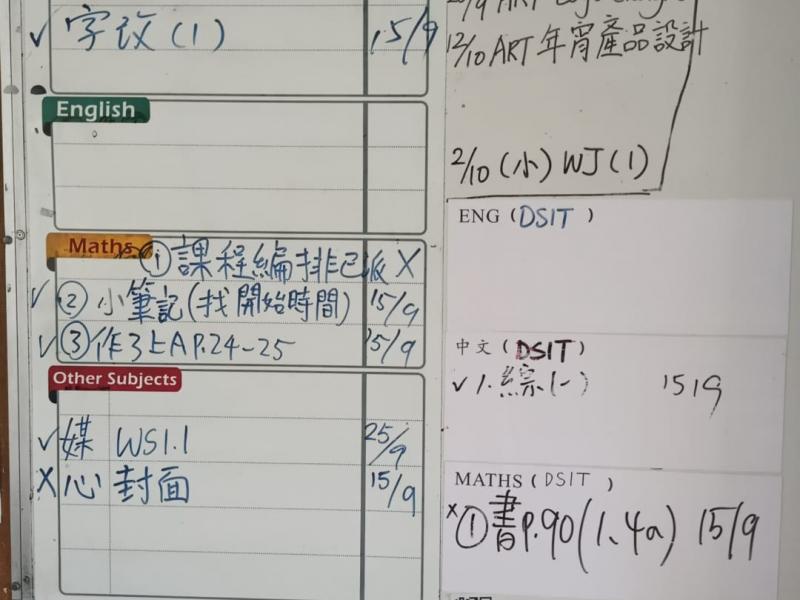 ✓ 字改(1) 15/9
English
Maths
① 課程編排已派 X
✓ ② 小筆記(找開始時間) 15/9
✓ ③ 作3上A P.24-25 15/9
Other Subjects
✓ 媒 WS1.1 25/9
X 心 封面 15/9
12/10 ART 年宵產品設計
2/10 (小) WJ(1)
ENG (DSIT)
中文 (DSIT)
✓ 1. 綜(一) 15/9
MATHS (DSIT)
X ① 書P.90(1、4a) 15/9